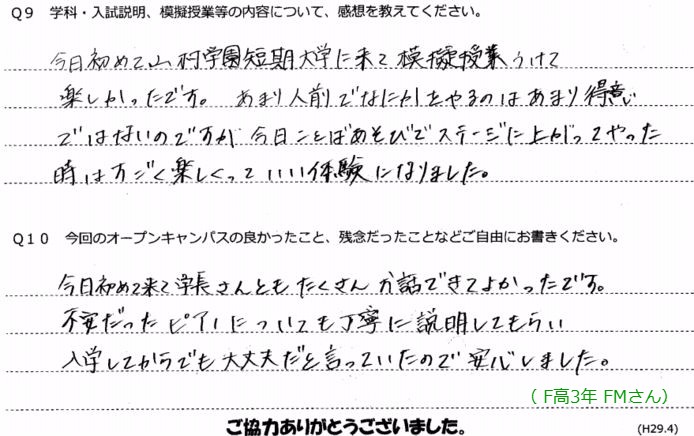 Q9 学科・入試説明、模擬授業等の内容について、感想を教えてください。
今日初めて山村学園短期大学に来て模擬授業うけて
楽しかったです。 あまり人前でなにかをやるのはあまり得意
ではないのですが今日ことばあそびでステージに上がってやった
時はすごく楽しくっていい体験になりました。
Q10 今回のオープンキャンパスの良かったこと、残念だったことなどご自由にお書きください。
今日初めて来て学長さんともたくさんお話できてよかったです。
不安だったピアノについても丁寧に説明してもらい
入学してからでも大丈夫だと言っていたので安心しました。
（F高3年 FMさん）
ご協力ありがとうございました。
(H29.4)